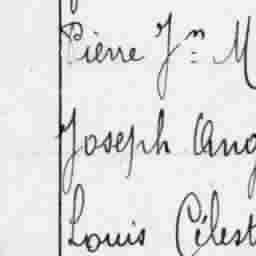 Pierre Jn M
Joseph Aug
Louis Célest